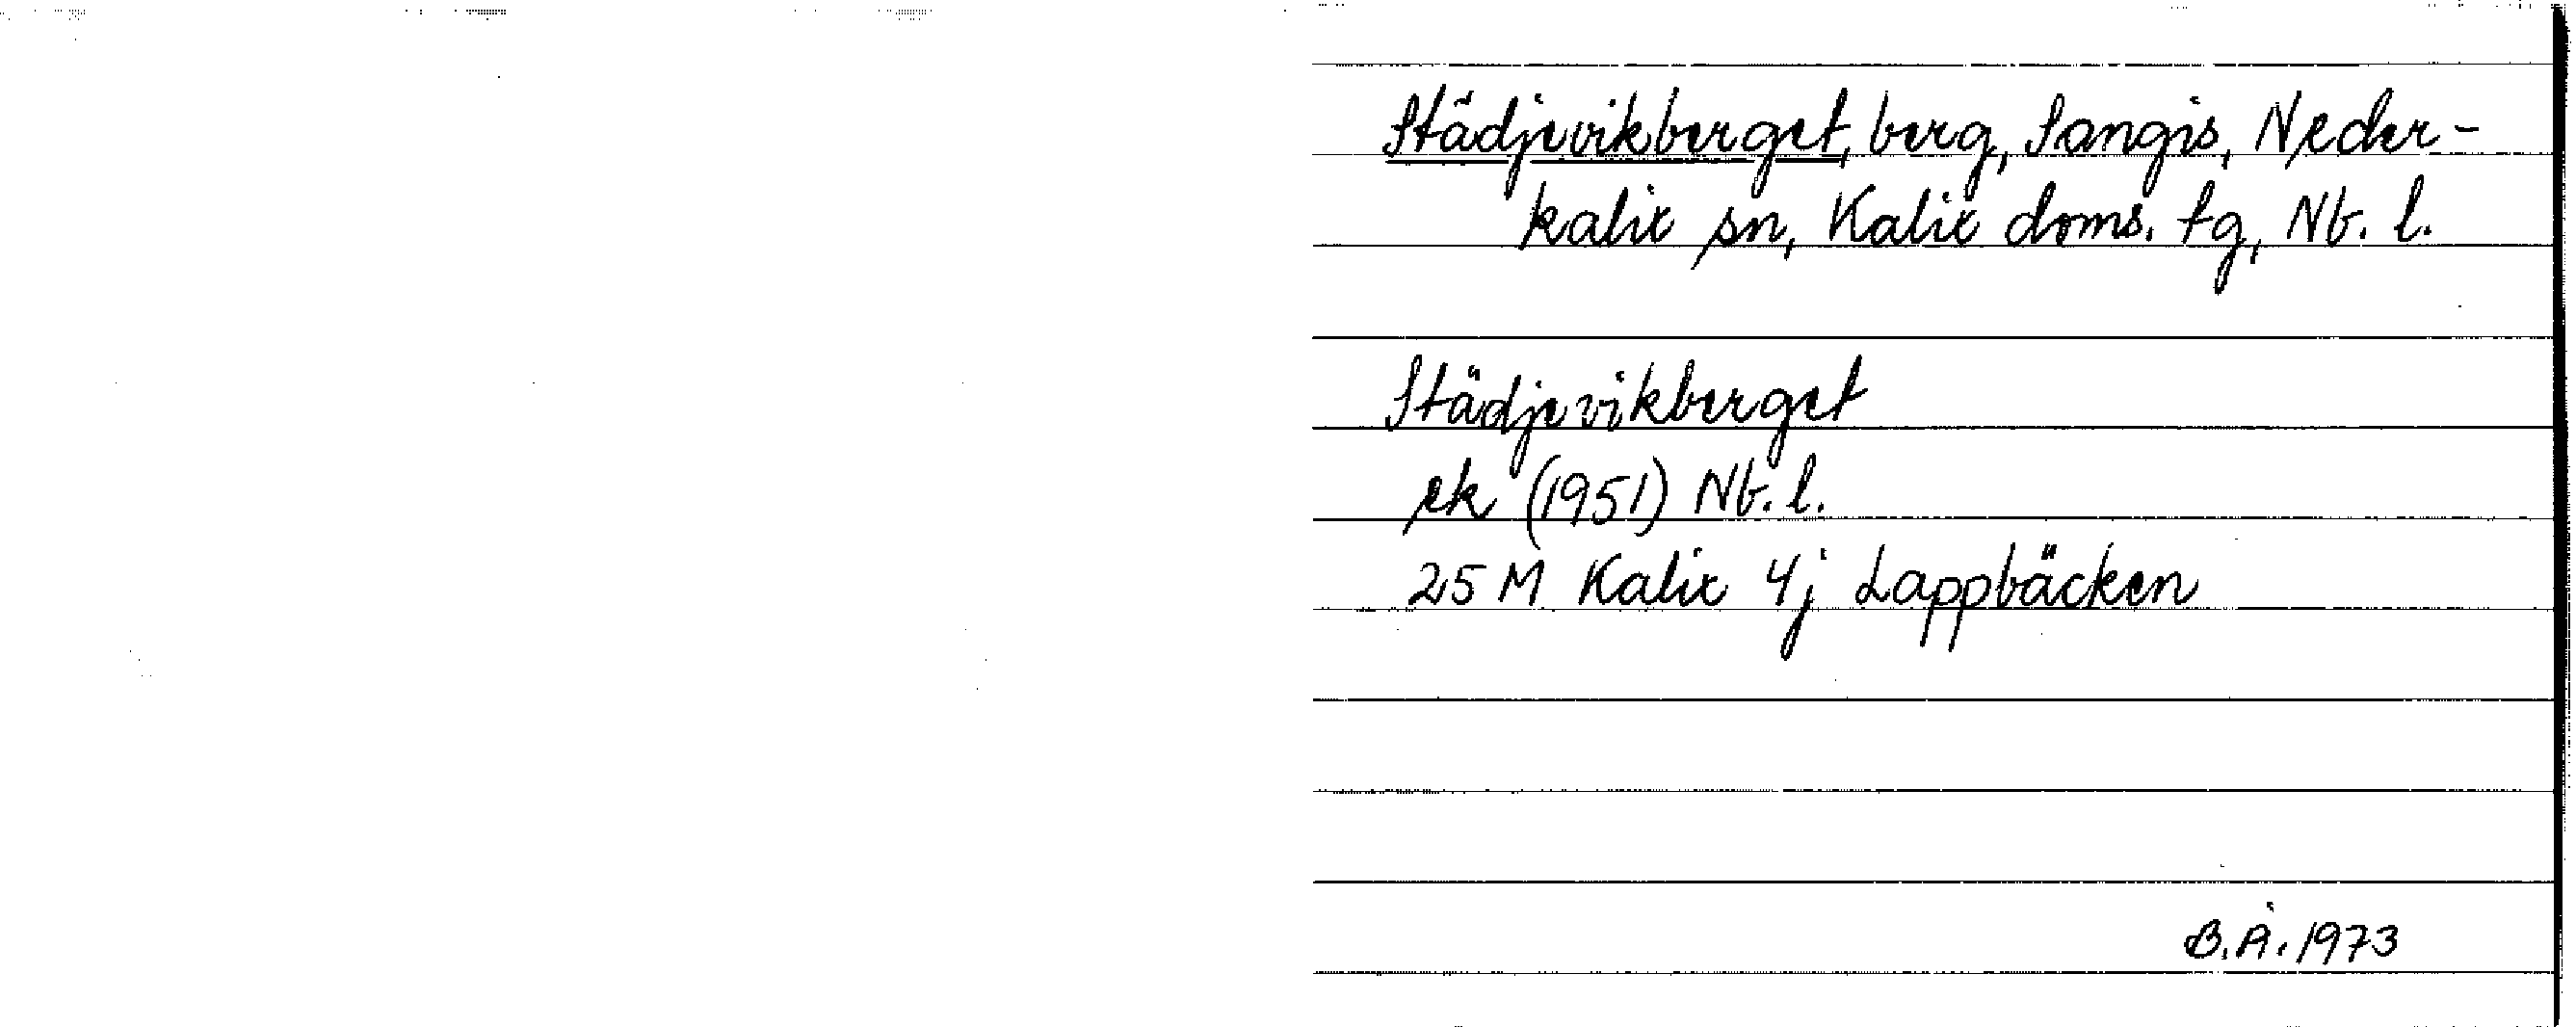 Städjevikberget, berg, Sangis, Neder-
kalix sn, Kalix doms. tg, Nb. l.
Städjevikberget
ek (1951) Nb. l.
25 M Kalix 4j Lappbäcken
B.Å. 1973